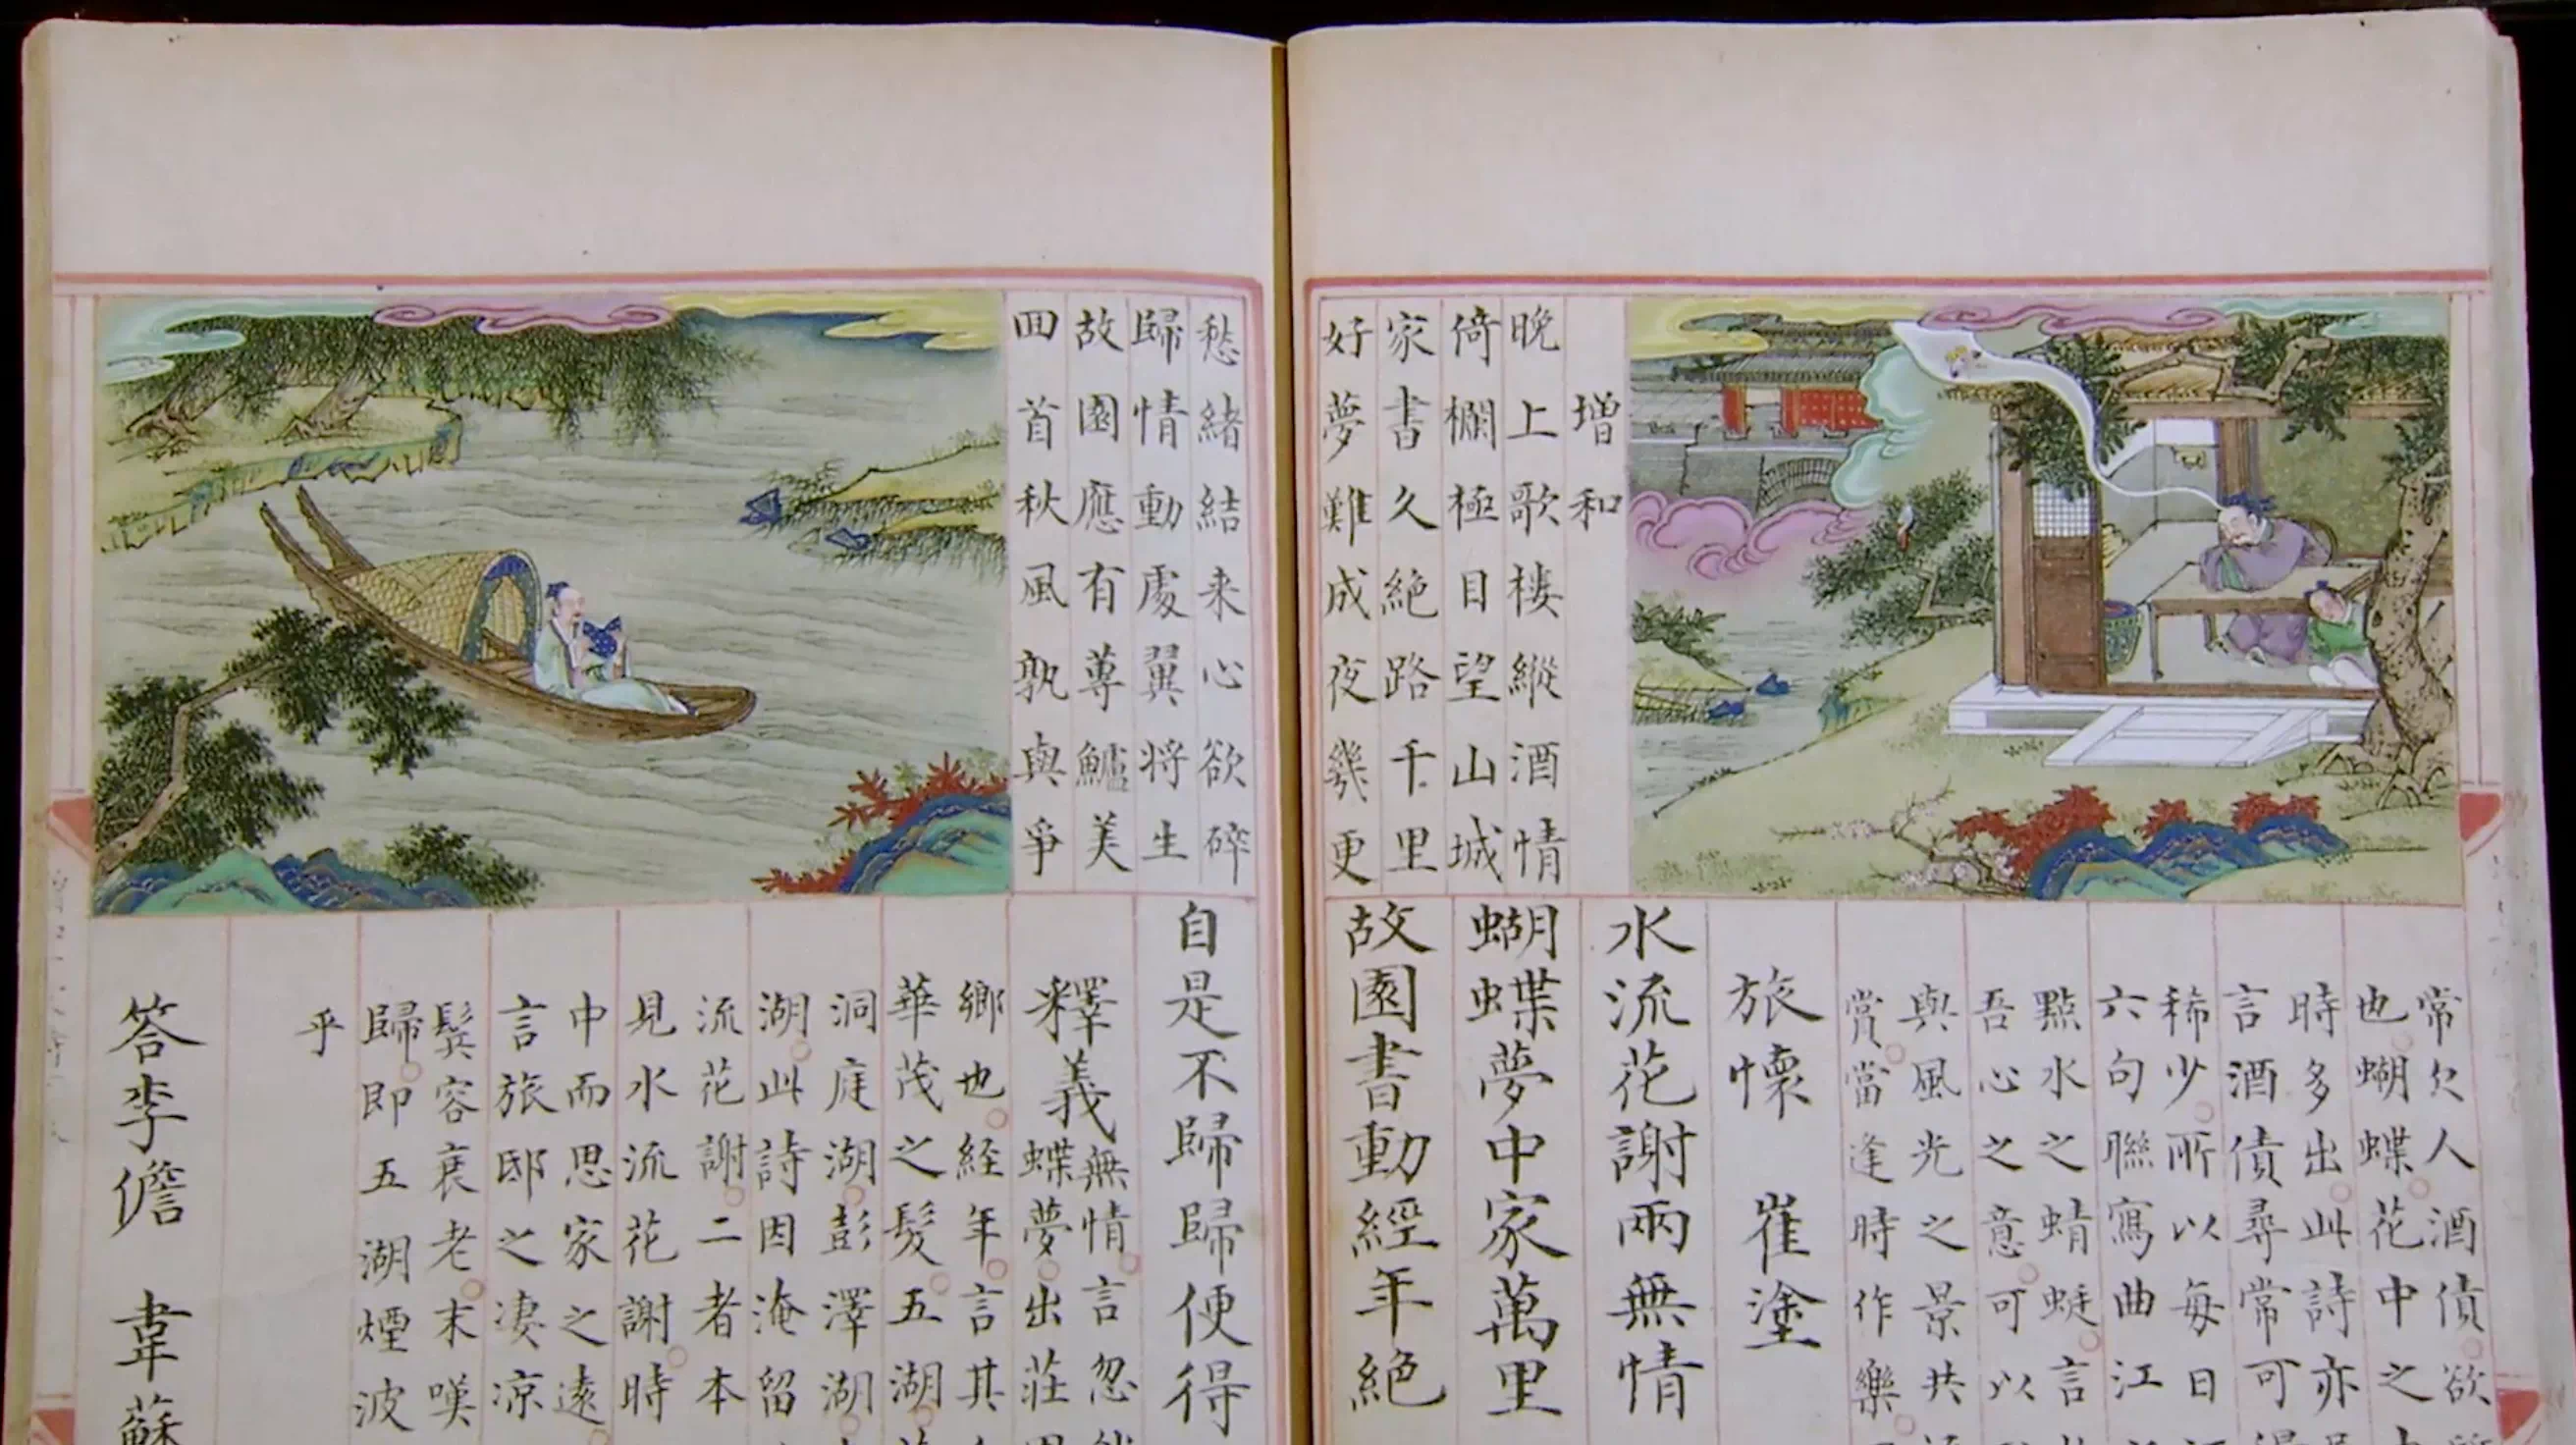 增和
晚上歌樓縱酒情
倚欄極目望山城
家書久絕路千里
好夢難成夜幾更
愁緒結来心欲碎
歸情動處翼将生
故園應有蓴鱸美
回首秋風孰與爭
常欠人酒債欲
也蝴蝶花中之
時多出此詩亦
言酒債尋常可
稀少所以每日
六句聯寫曲江
點水之蜻蜓言
吾心之意可以
與風光之景共
賞當逢時作樂
旅懷 崔塗
水流花謝兩無情
蝴蝶夢中家萬里
故園書動經年絕
自是不歸歸便得
釋義
無情言忽
蝶夢出莊
鄉也経年言其
華茂之髮五湖
洞庭湖彭澤湖
湖此詩因淹留
流花謝二者本
見水流花謝時
中而思家之遠
言旅邸之凄凉
鬂容衰老末嘆
歸即五湖煙波
乎
答李儋 韋蘇